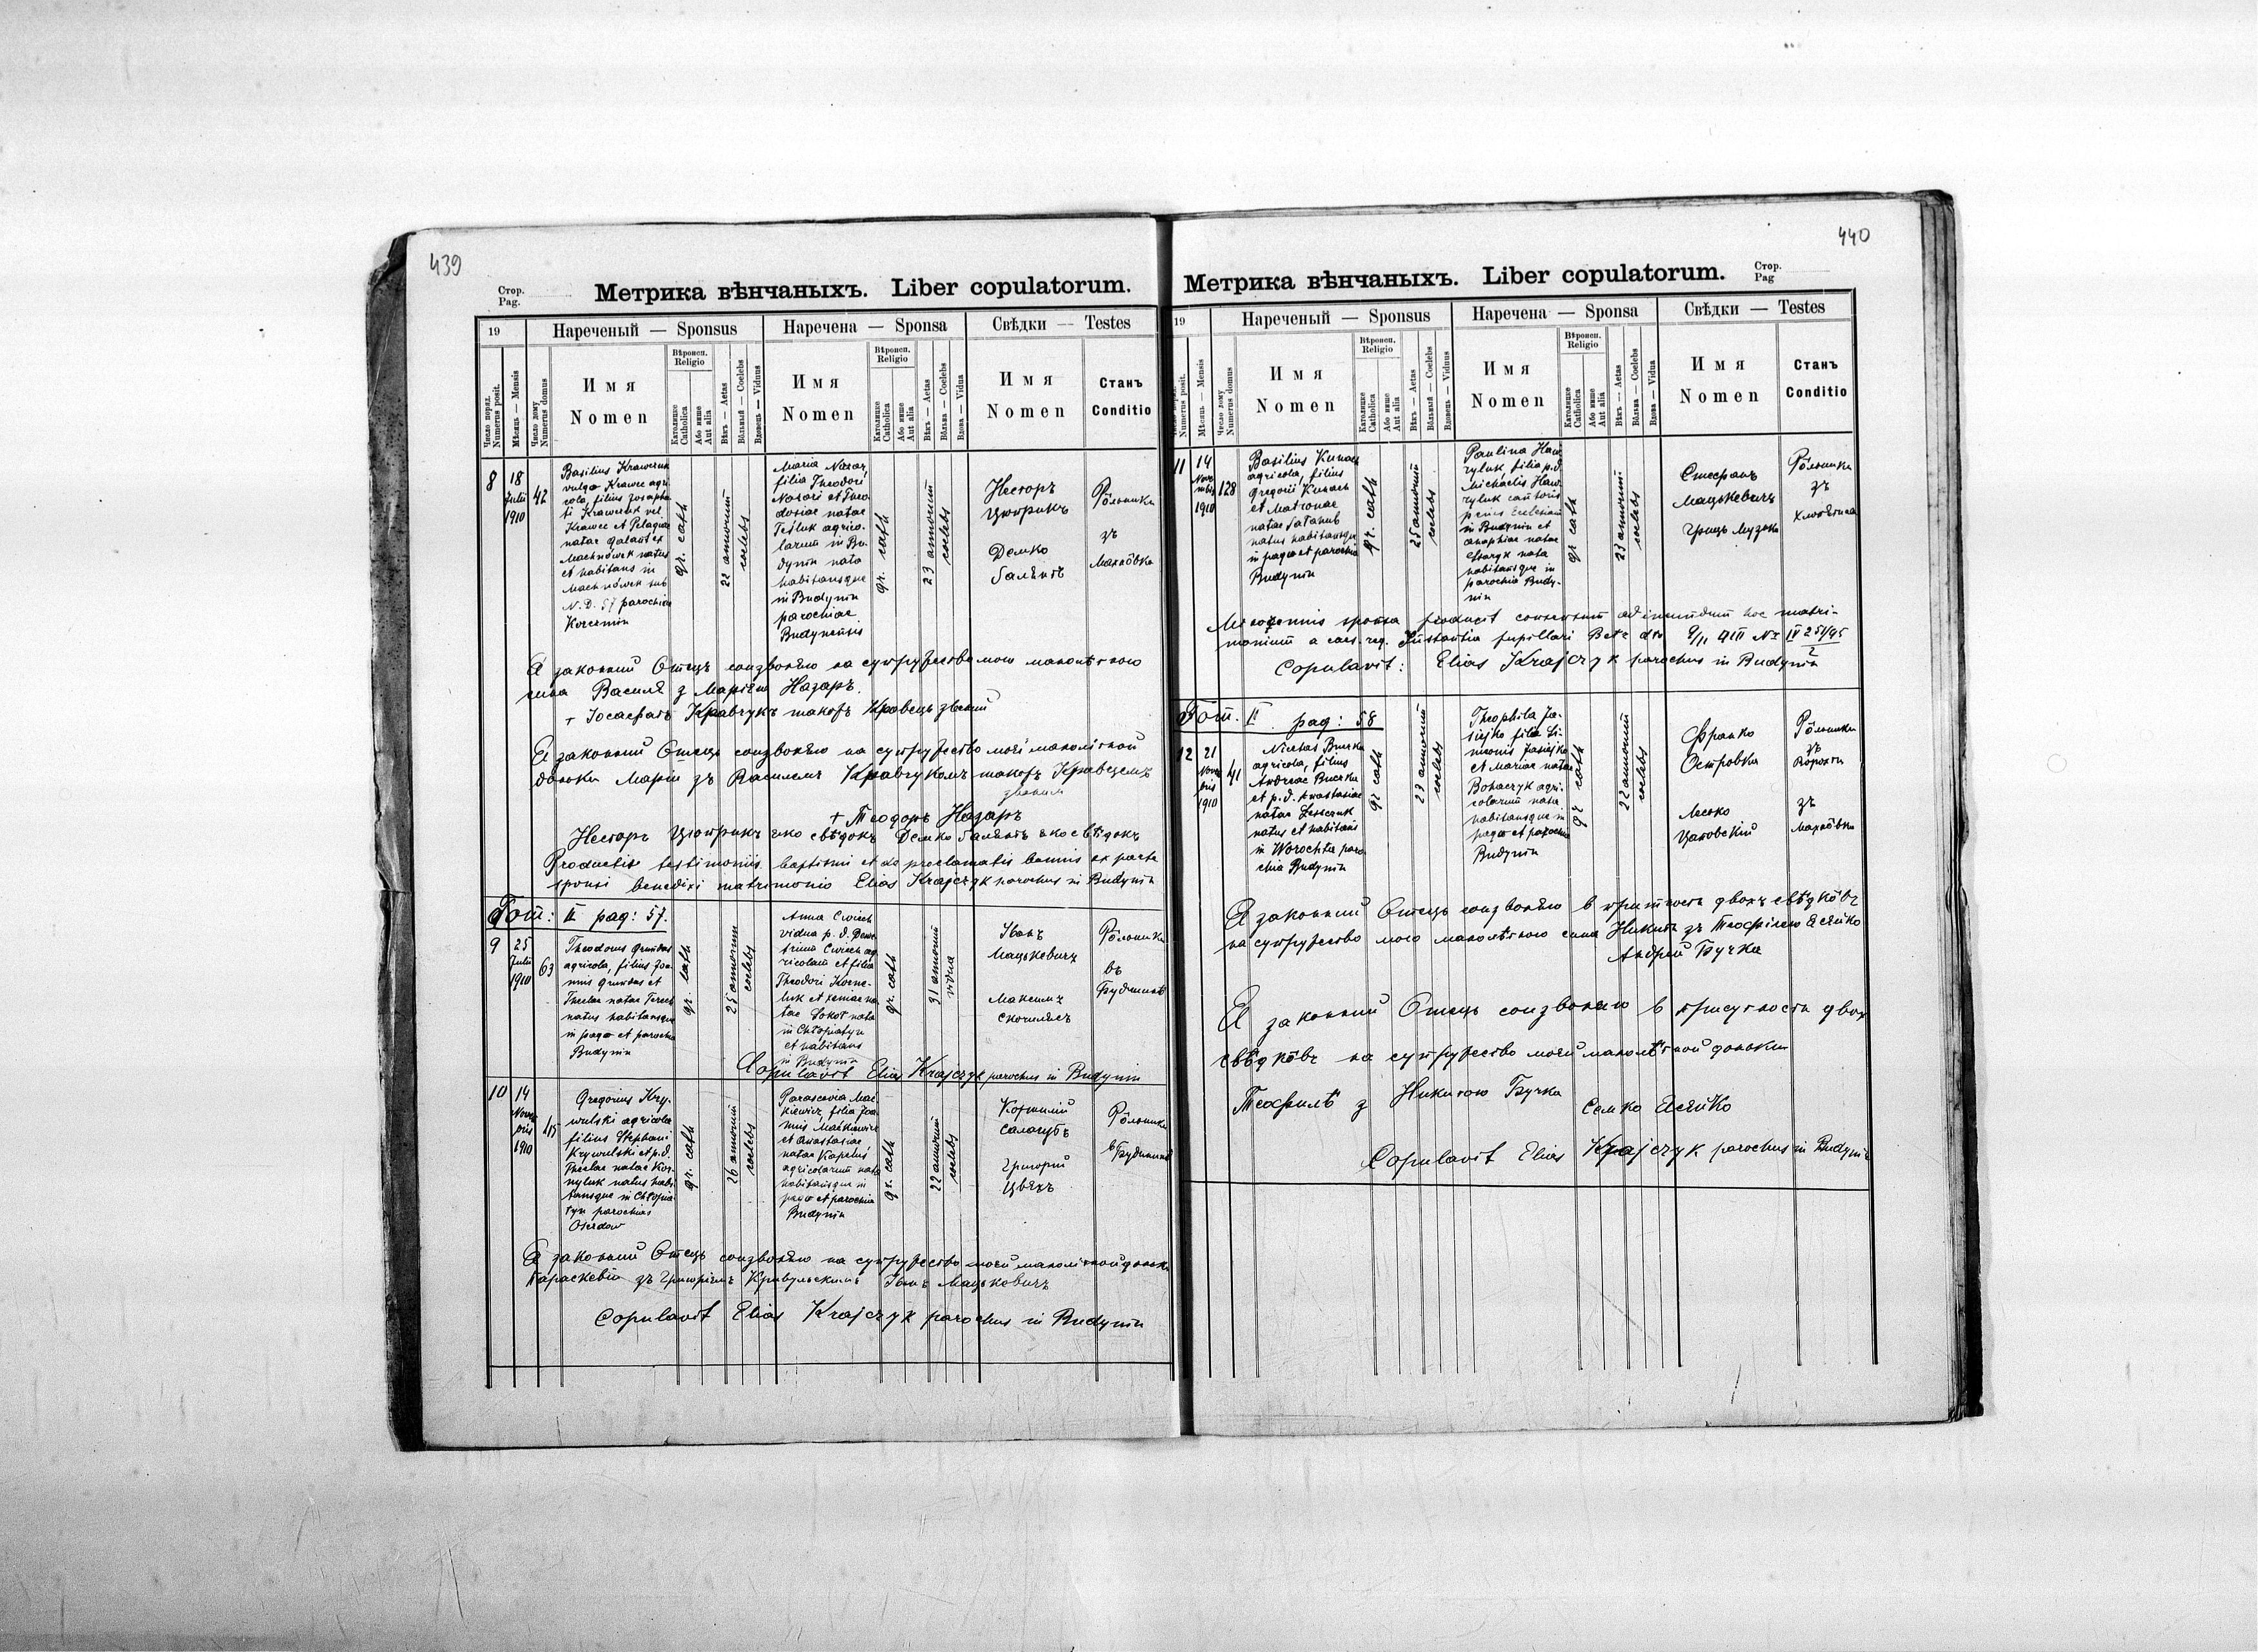 439
Стор.
Pag.
Метрика вѣнчаныхъ. Liber copulatorum.
19
Нареченый — Sponsus
Наречена — Sponsa
Свѣдки — Testes
Число поряд.
Numerus posit.
Мѣсяць — Mensis
Число дому
Numerus domus
Имя
Nomen
Вѣроисп.
Religio
Католицке
Catholica
Або инше
Aut alia
Вѣкъ — Aetas
Вôльный — Coelebs
Вдовець — Viduus
Имя
Nomen
Вѣроисп.
Religio
Католицке
Catholica
Або инше
Aut alia
Вѣкъ — Aetas
Вôльна — Coelebs
Вдова — Vidua
Имя
Nomen
Станъ
Conditio
8
18
Julii
1910
42
Basilius Krawczuk
vulgo Krawec agri
cola, filius Josapha
ti Krawczuk vel
Krawec et Pelagiae
natae Galant ex
Machnówek natus
et habitans in
Machnówek sub
N. D. 57 parochiae
Korczmin
gr. cath
22 annorum
coelebs
Maria Nazar,
filia Theodori
Nazari et Theo
dosiae natae
Tesluk agrico-
larum in Bu-
dynin nata
habitansque
in Budynin
parochiae
Budynensis
gr. cath
23 annorum
coelebs
Несторъ
Цютрикъ
Демко
Галянтъ
Рôльники
зъ
Махнôвка
Я законный Отець соизволяю на супружество мого малолѣтного
сина Василя з Маріею Назаръ.
+ Іосафатъ Кравчукъ также Кравець званий
Я законный Отець соизволяю на супружество моеи малолѣтной
доньки Маріи зъ Василемъ Кравчукомъ также Кравецемъ
званим
+ Теодоръ Назаръ
Несторъ Цютрикъ яко свѣдокъ Демко Галянтъ яко свѣдокъ
Productis testimoniis baptismi et de proclamatis bannis ex parte
sponsi benedixi matrimonio Elias Krajczyk parochus in Budynin
Tom: II pag: 57.
9
25
Julii
1910
63
Theodorus Grundas
agricola, filius Joa-
nnis Grundas et
Theclae natae Terech
natus habitansque
in pago et parochia
Budynin
gr. cath
25 annorum
coelebs
Anna Cwiech
vidua p. d. Deme
trium Cwiech ag
ricolam et filia
Theodori Korne-
luk et Xeniae na
tae Sokoł nata
in Chłopiatyn
et habitans
in Budynin
gr. cath
31 annorum
vidua
Иванъ
Мацькевичъ
Максимъ
Рôльники
въ
Будининѣ
Copulavit Elias Krajczyk parochus in Budynin
10
14
Novem
bris
1910
45
Gregorius Kry-
wulski agricola
filius Stephani
Krywulski et p. d.
Theclae natae Kor-
nyluk natus habi
tansque in Chłopia
tyn parochiae
Oserdow
gr. cath
26 annorum
coelebs
Parascevia Mac-
kiewicz, filia Joa
nnis Mackiewicz
et Anastasiae,
natae Kapeluś
agricolarum nata
habitansque in
pago et parochia
Budynin
gr. cath
22 annorum
coelebs
Корнилій
Салагубъ
Григорій
Цвѣхъ
Рôльники
в Будининѣ
Я законный Отець соизволяю на супружество моей малолѣтной доньки
Параскевіи зъ Григоріемъ Кривульскимъ Іванъ Мацькевичъ
Copulavit Elias Krajczyk parochus in Budynin
440
Стор.
Pag
Метрика вѣнчаныхъ. Liber copulatorum.
19
Нареченый — Sponsus
Наречена — Sponsa
Свѣдки — Testes
Numerus posit.
Мѣсяць — Mensis
Число дому
Numerus domus
Имя
Nomen
Вѣроисп.
Religio
Католицке
Catholica
Або инше
Aut alia
Вѣкъ — Aetas
Вôльный — Coelebs
Вдовець — Viduus
Имя
Nomen
Вѣроисп.
Religio
Католицке
Catholica
Або инше
Aut alia
Вѣкъ — Aetas
Вôльна — Coelebs
Вдова — Vidua
Имя
Nomen
Станъ
Conditio
11
14
Nove
mbris
1910
128
Basilius Kunach
agricola, filius
Gregorii Kunach
et Matronae
natae Salahub
natus habitansque
in pago et parochia
Budynin
gr. cath
25 annorum
coelebs
Paulina Haw
ryluk, filia p. d.
Michaelis Haw-
ryluk cantoris
penes Ecclesiam
in Budynin et
Anaphiae natae
nata
habitansque in
parochia Budy-
nin
gr cath
23 annorum
coelebs
Стефанъ
Мацькевичъ
Грицъ Музыка
Рôльники
зъ
Minorennis sponsa producit consensum ad ineundum hoc matri-
monium a caes. reg. Instantia pupillari Bełz dto 9/11 910 Nr IV 251/95
2
Copulavit: Elias Krajczyk parochus in Budynin
Tom. II pag: 58
12
21
Novem
bris
1910
41
Nicetas Buczka
agricola, filius
Andreae Buczka
et p. d. Anastasiae
natae Leszczuk
natus et habitans
in Worochta paro
chia Budynin
gr cath
23 annorum
coelebs
Theophila Ja-
siejko filia Si-
meonis Jasiejko
et Mariae natae
Bohaczyk agri-
colarum nata
habitansque in
pago et parochia
Budynin
gr cath
22 annorum
coelebs
Франко
Островка
Лесько
Цаповскій
Рôльники
зъ
Ворохти
зъ
Махнôвка
Я законный Отець соизволяю в притность двохъ свѣдкôвъ
на супружество мого малолѣтного сина Никити зъ Теофілею Ясѣйко
Андрей Бучка
Я законный Отець соизволяю в присутности двох
свѣдкôвъ на супружество моей малолѣтной доньки
Теофилѣ з Никитою Бучка
Семко Ясѣйко
Copulavit Elias Krajczyk parochus in Budynin